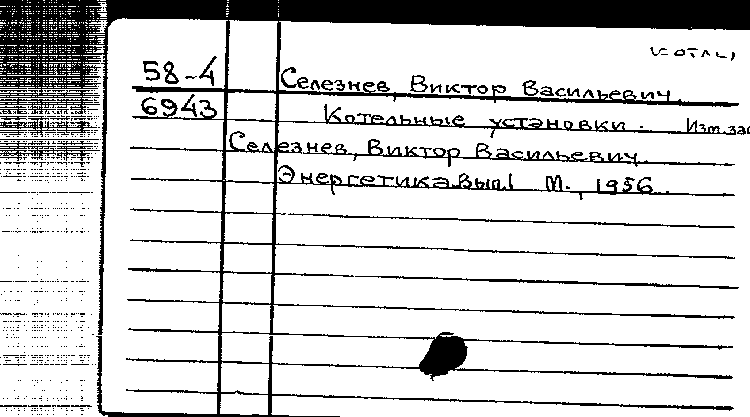 котлы
58-4 Селезнев, Виктор Васильевич.
6943 Котельные установки.
Селезнев, Виктор Васильевич.
Энергетика. Вып.1 М., 1956.